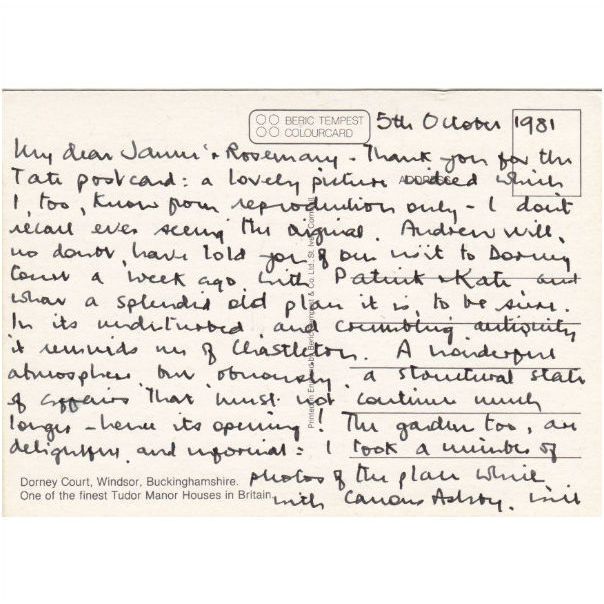 BERIC TEMPEST
COLOURCARD
5th October 1981
My dear James & Rosemary - Thank you for the
Tate postcard: a lovely picture indeed which
ADDRESS
I, too, know from reproduction only - I don't
recall ever seeing the original. Andrew will,
no doubt, have told you of our visit to Dorney
Court a week ago with Patrick & Kate and
what a splendid old place it is, to be sure.
In its undisturbed and crumbling antiquity
it reminds me of Chastleton. A wonderful
atmosphere but obviously a structural state
of affairs that must not continue much
longer - hence its opening! The garden too, are
delightful and informal: I took a number of
photos of the place which
with Canons Ashby, will
Dorney Court, Windsor, Buckinghamshire.
One of the finest Tudor Manor Houses in Britain.
Printed in England by Beric Tempest & Co. Ltd., St. Ives, Cornwall